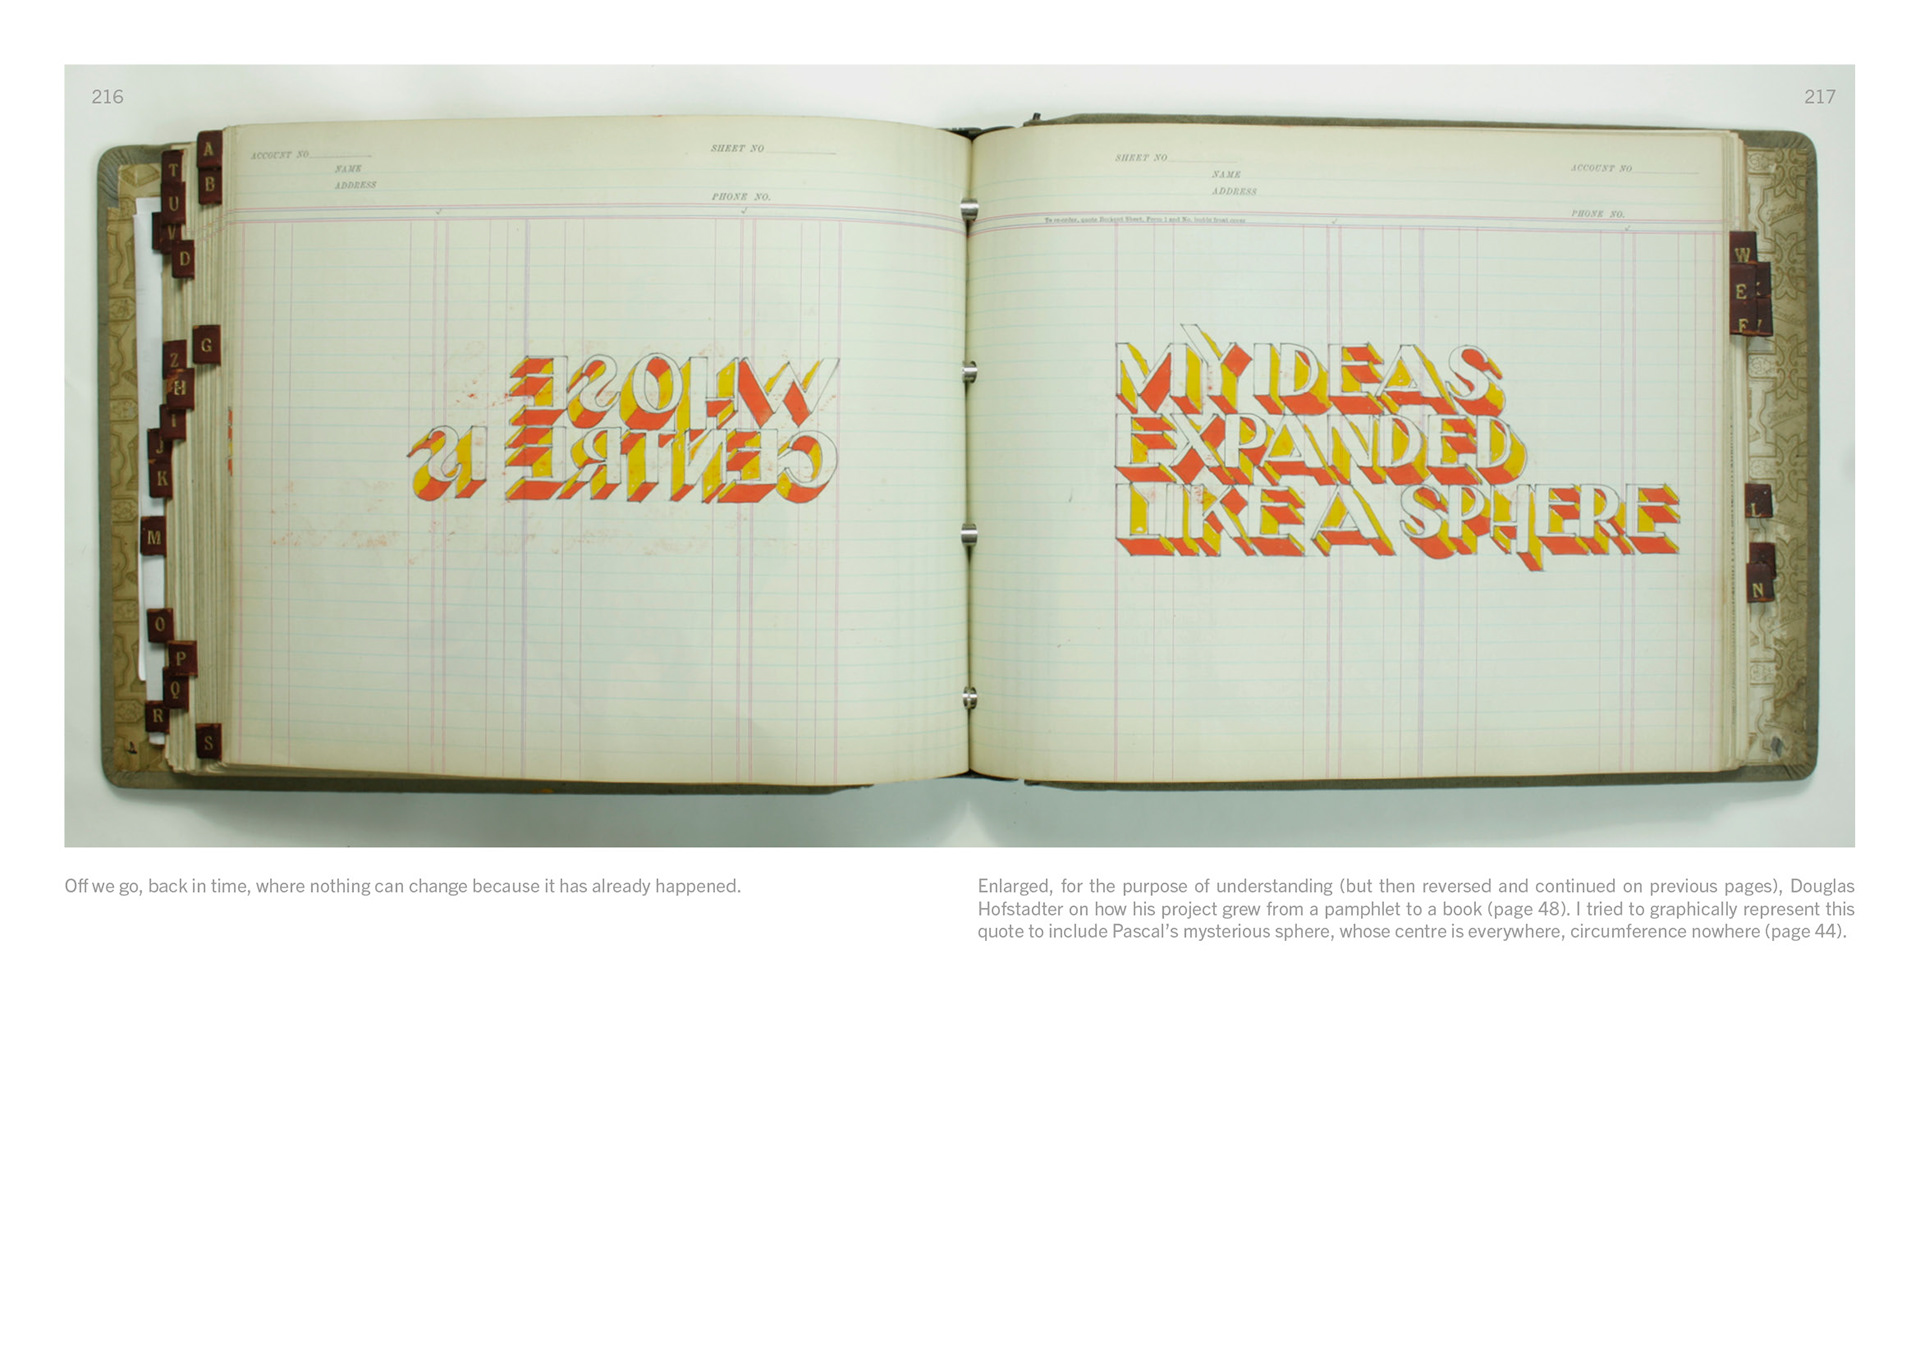 216
217
ACCOUNT NO
SHEET NO
NAME
ADDRESS
PHONE NO.
WHOSE
CENTRE IS
A
B
T
U
V
D
G
Z
H
I
J
K
M
O
P
Q
R
S
SHEET NO
ACCOUNT NO
NAME
ADDRESS
PHONE NO.
MY IDEAS
EXPANDED
LIKE A SPHERE
W
E
F
L
N
Off we go, back in time, where nothing can change because it has already happened.
Enlarged, for the purpose of understanding (but then reversed and continued on previous pages), Douglas
Hofstadter on how his project grew from a pamphlet to a book (page 48). I tried to graphically represent this
quote to include Pascal’s mysterious sphere, whose centre is everywhere, circumference nowhere (page 44).